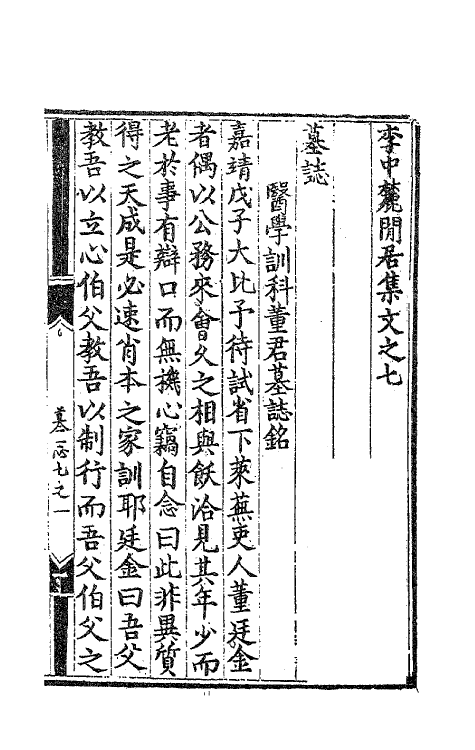 李中麓閒居集文之七
墓誌
醫學訓科董君墓誌銘
嘉靖戊子大比予待試省下萊蕪吏人董廷金
者偶以公務來會久之相與飫洽見其年少而
老於事有辯口而無機心竊自念曰此非異質
得之天成是必速肖本之家訓耶廷金曰吾父
教吾以立心伯父教吾以制行而吾父伯父之
墓志七之一